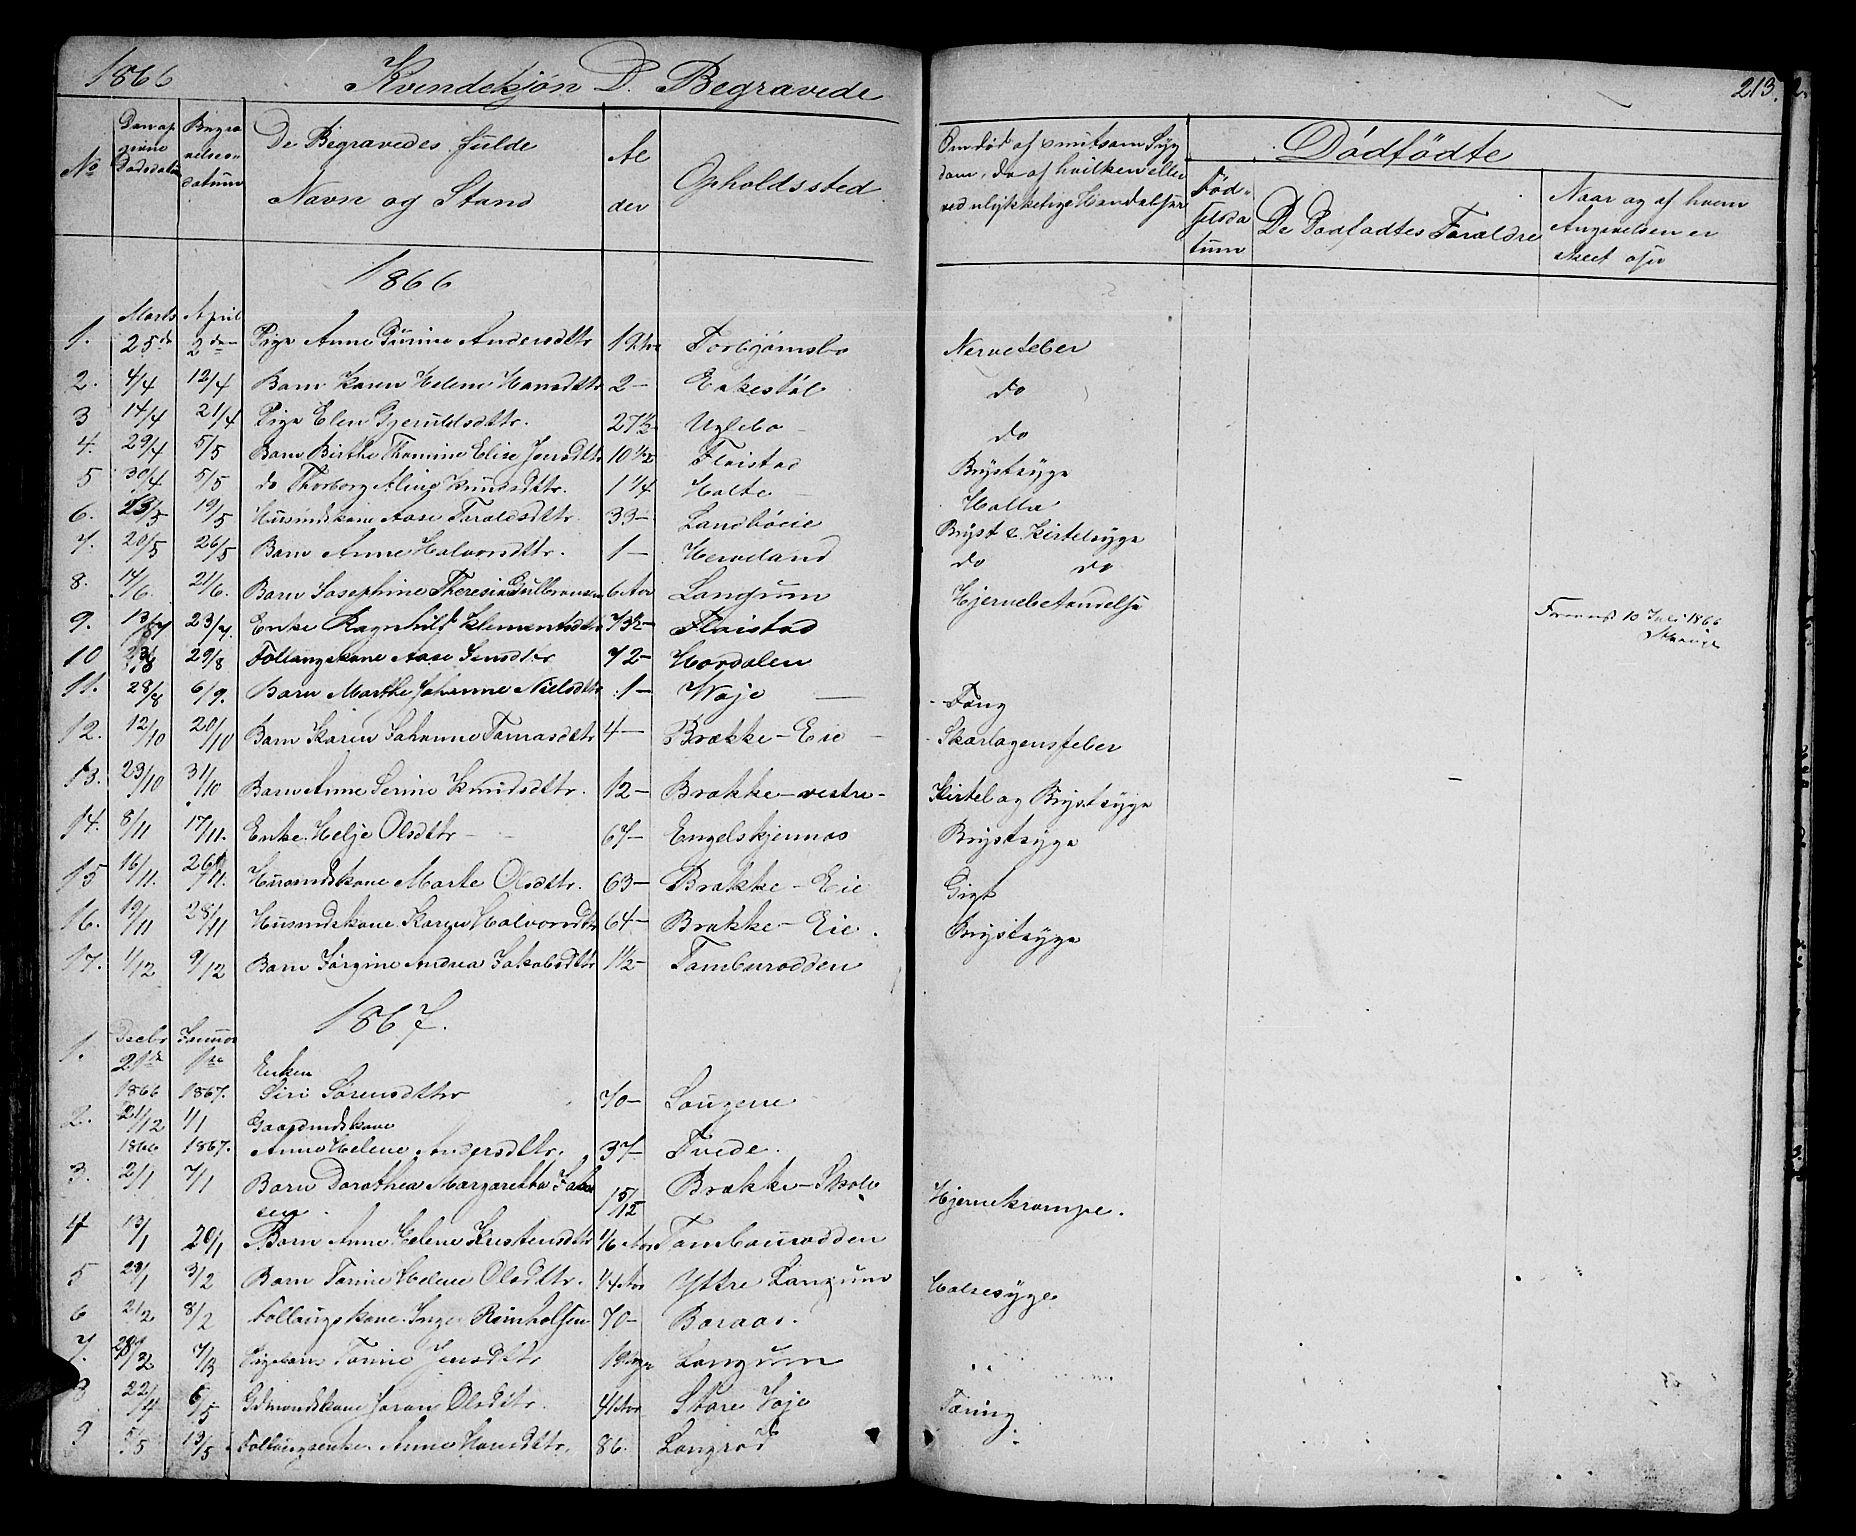 1866 Kvindekjøn D. Begravede
213.
No
Dødsdatum
Begravelsesdatum
De Begravedes fulde
Navn og Stand
Al
der
Opholdssted
Om død af smitsom Syg
dom, da af hvilken eller
ved ulykkelige Hændelser
Dødfødte
Fød-
selsda
tum
De Dødfødtes Forældre
Naar og af hvem
Angivelsen er
skeet
1866
Marts April
1. 25de 2den Pige Anne Andersdttr 19 Torbjørnsbo Nervefeber
2. 4/4 12/4 Barn Karen Helene Hansdttr 2- Eskestøl do
3 14/4 21/4 Pige Elen Gjeruldsdttr. 27½ Uglebo - do
4. 29/4 5/5 Barn Birthe Thomine Elise Jensdttr 10½ Floistad Brystsyge
5 30/4 5/5 do Thorborg Aline Knudsdttr. 1¼ Holte - Halla
6. 13/5 19/5 Husmdskone Aase Taraldsdttr. 33- Landbøeie Bryst & Kirtelsyge
7. 20/5 26/5 Barn Anne Halvorsdttr. 1- Herveland do do
8. 14/6. 21/6. Barn Josephine Theresia Gulbransen 6 Langum Hjernebetændelse
9. 13/7 23/7. Enke Ragnhild Klementsdttr 73½- Floistad Fremvist 10 Juli 1866
10 29/8 Follaugskone Aase Jensdttr 72- Hordalen
11. 28/8 6/9. Barn Marthe Johanne Nielsdttr 1- Woje - Tæring
12. 12/10 20/10 Barn Karen Johanne Tomasdttr 4- Brække-Eie - Skarlagensfeber
13. 23/10 31/10 Barn Anne Serine Knudsdttr. 12- Brække-vestre- Kirtel og Brystsyge
14. 8/11 17/11. Enke Helje Olsdttr - 67- Engelskjennæs Brystsyge
15 16/11. 26/11. Husmdskone Marte Olsdttr. 63- Brække-Eie Gigt
16. 19/11 28/11 Husmdskone Karen Halvorsdttr 64- Brække-Eie. Brystsyge
17. 1/12 9/12 Barn Jørgine Andrea Jakobsdttr 1½- Tambursodden
1867.
Decbr Januar
1. 21de 1ste Enken
1866 1867. Siri Sørensdttr 70- Longene
2. 21/12 1/1 Gaardmdskone
1866 1867. Anne Helene Andersdttr. 37- Tvede.
3. 2/1 7/1 Barn Dorothea Margaretha Jakob
sen. 15/12 Brække-Skole Hjernekrampe.
4 13/1 20/1 Barn Anne Helene Kristensdttr 1/6 Aar Tambursodden
5 28/1 3/2 Barn Tomine Helene Olsdttr. 1/4 Aar Yttre Langum Halsesyge
6 21/2 8/2 Follaugskone Inger Reinholsen 70- Boraas.
7. 28/2 7/3 Pigebarn Tomine Jensdttr Langum
8 22/4 6/5 Gdmandskone Joran Olsdttr. 41 Aar Store Voje Tæring
9 5/5 13/5 Follaugsenke Anne Hansdttr. 86. Langrød